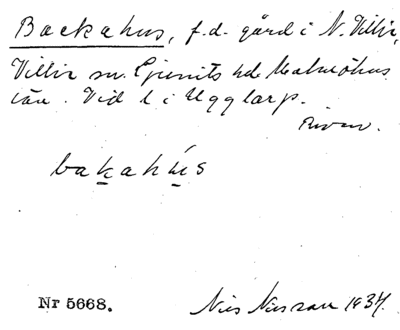 Backahus, f.d. gård i N. Villie,
Villie sn. Ljunits hd. Malmöhus
län. Vid l i Ugglarp.
Riven.
bakahús
Nr 5668.
Nils Nilsson 1934.